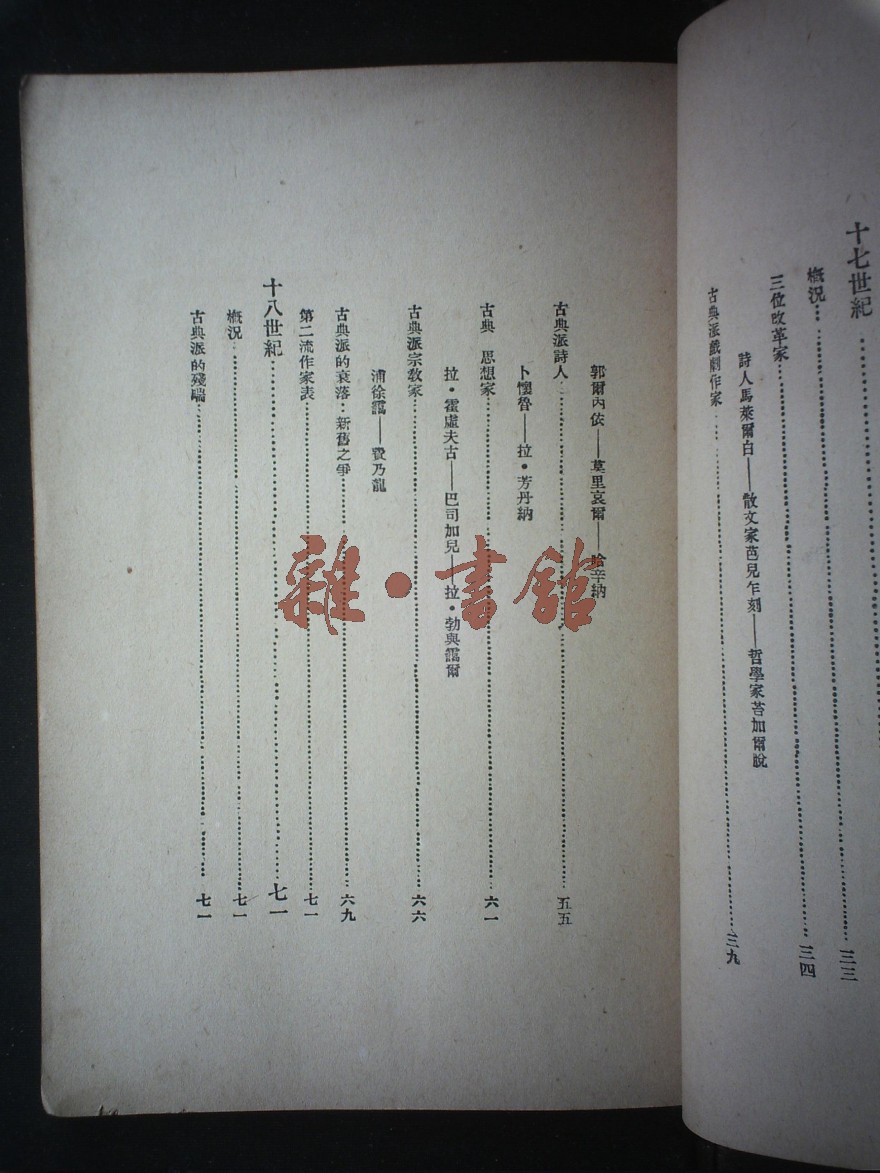 十七世紀……三三
概況……三四
三位改革家……
詩人馬萊爾白——散文家芭兒乍刻——哲學家苔加爾脫
古典派戲劇作家……三九
郭爾內依——莫里哀爾——哈辛納
古典派詩人……五五
卜懷魯——拉•芳丹納
古典 思想家……六一
拉•霍虛夫古——巴司加兒——拉•勃輿靄爾
古典派宗教家……六六
浦徐靄——費乃龍
古典派的衰落：新舊之爭……六九
第二流作家表……七一
十八世紀……七一
概況……七一
古典派的殘喘……七一
雜•書館